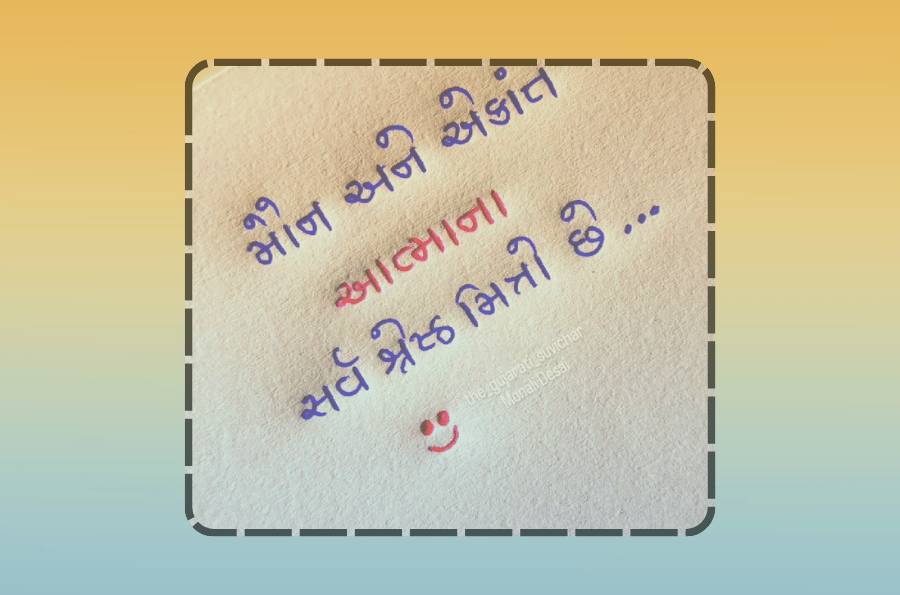 મૌન અને એકાંત
આત્માના
સર્વ શ્રેષ્ઠ મિત્રો છે...
the_gujarati_suvichar
Monal Desai